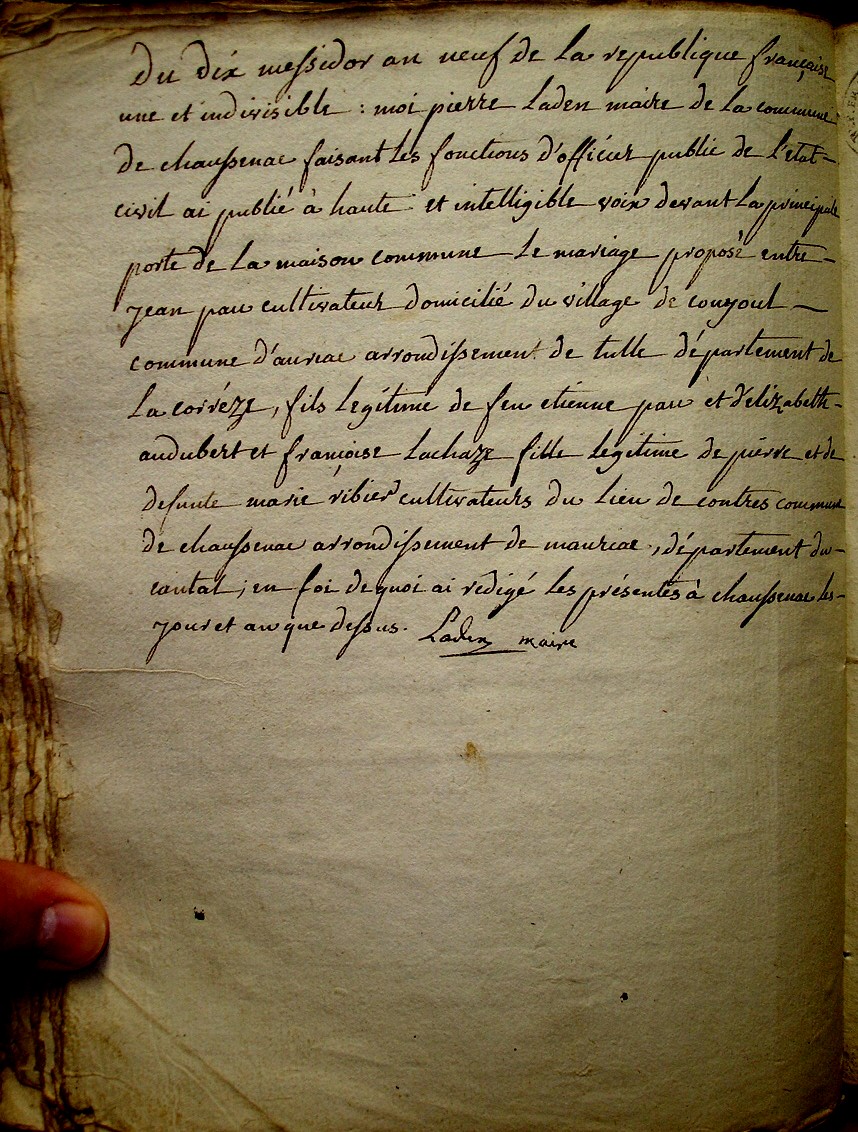 Du dix messidor an neuf de la republique française
une et indivisible : moi pierre Laden maire de la commune
de chaussenac faisant les fonctions d'officier public de l'état-
civil ai publié à haute et intelligible voix devant la principale
porte de la maison commune le mariage proposé entre-
jean pau cultivateur domicilié du village de couzoul
commune d'auriac arrondissement de tulle département de
la corrèze, fils legitime de feu etienne pau et d'elizabeth-
audubert et françoise Lachaze fille legitime de pierre et de
defunte marie ribier cultivateurs du Lieu de contres commune
de chaussenac arrondissement de mauriac, département du-
cantal; en foi de quoi ai redigé les présentes à chaussenac les-
jour et an que dessus. Laden maire